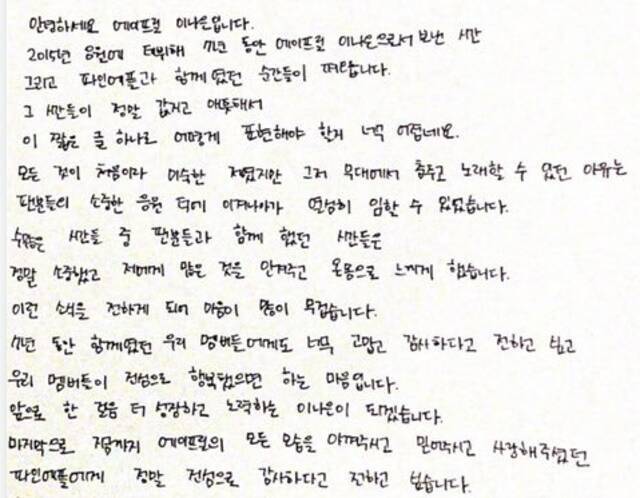 안녕하세요 에이프릴 이나은입니다.
2015년 응원에 더위해 7년 동안 에이프릴 이나은으로서 보낸 시간
그리고 파인에플과 함께였던 순간들이 떠오릅니다.
그 시간들이 정말 값지고 애틋해서
이 짧은 글 하나로 어떻게 표현해야 할지 너무 어렵네요.
모든 것이 처음이라 미숙한 저였지만 그저 무대에서 춤추고 노래할 수 있었던 이유는
팬분들의 소중한 응원 덕에 이겨나가 열심히 임할 수 있었습니다.
수많은 시간들 중 팬분들과 함께 했던 시간들은
정말 소중했고 저에게 많은 것을 안겨주고 온몸으로 느끼게 했습니다.
이런 소식을 전하게 되어 마음이 많이 무겁습니다.
7년 동안 함께였던 우리 멤버들에게도 너무 고맙고 감사하다고 전하고 싶고
우리 멤버들이 진심으로 행복했으면 하는 마음입니다.
앞으로 한 걸음 더 성장하고 노력하는 이나은이 되겠습니다.
마지막으로 지금까지 에이프릴의 모든 모습을 아껴주시고 믿어주시고 사랑해주셨던
파인에플에게 정말 진심으로 감사하다고 전하고 싶습니다.